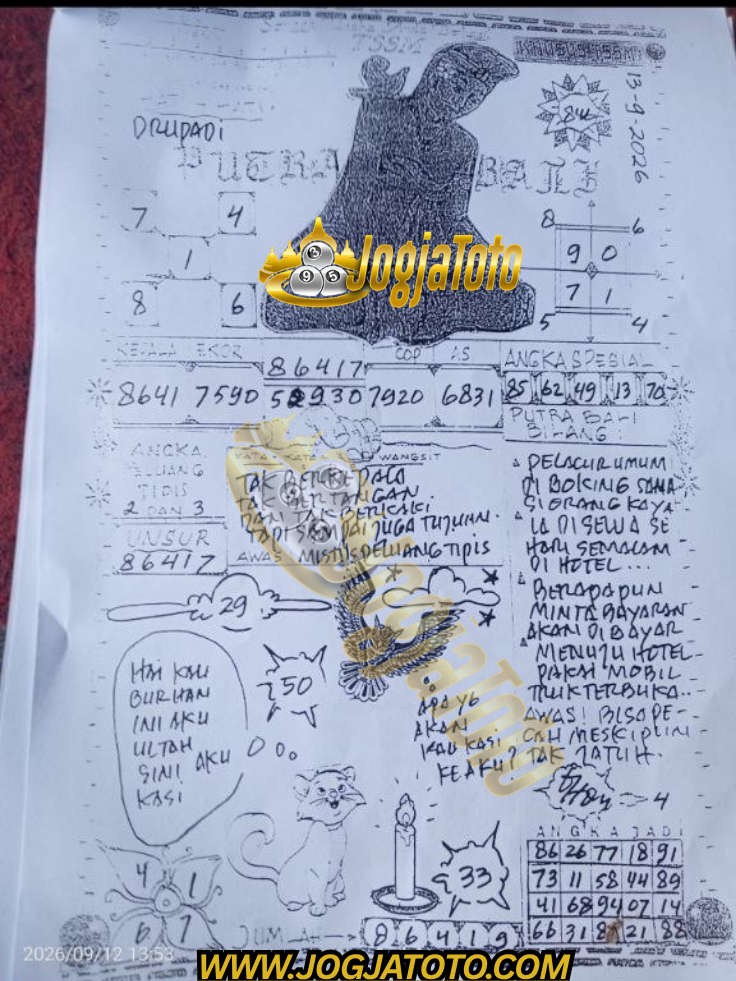 KHUSUS TSSM
TSSM
13-9-2026
84
DRUPADI
PUTRA BALI
7 4
1
8 6
8 6
9 0
7 1
5 4
JogjaToto
KEPALA EKOR
86417
COP AS
ANGKA SPESIAL
8641 7590
7920 6831
85 62 49 13 70
PUTRA BALI
BILANG:
ANGKA
PELUANG
TIPIS
2 DAN 3
UNSUR
86417
WANGSIT
TAK BERKEPALA
TAK BERTANGAN.
DAN TAK BERKAKI
TAPI SAMPAI JUGA TUJUAN.
AWAS! MISTIS PELUANG TIPIS
PELACUR UMUM
DI BOKING SAMA
SI ORANG KAYA
IA DISEWA SE
HARI SEMALAM
DI HOTEL...
BERAPAPUN
MINTA BAYARAN
AKAN DIBAYAR
MENUJU HOTEL
PAKAI MOBIL
TRUK TERBUKA..
AWAS! BISA PE-
CAH MESKIPUN
TAK JATUH.
29
50
HAI KAU
BURHAN
INI AKU
ULTAH
SINI AKU
KASI
APA YG
AKAN
KAU KASI
KE AKU?
JogjaToto
4
33
4 1
6 7
ANGKA JADI
86 26 77 18 91
73 11 58 44 89
41 68 94 07 14
66 31 21 88
JUMLAH → 8 6 4 1 9
2026/09/12 13:53
WWW.JOGJATOTO.COM